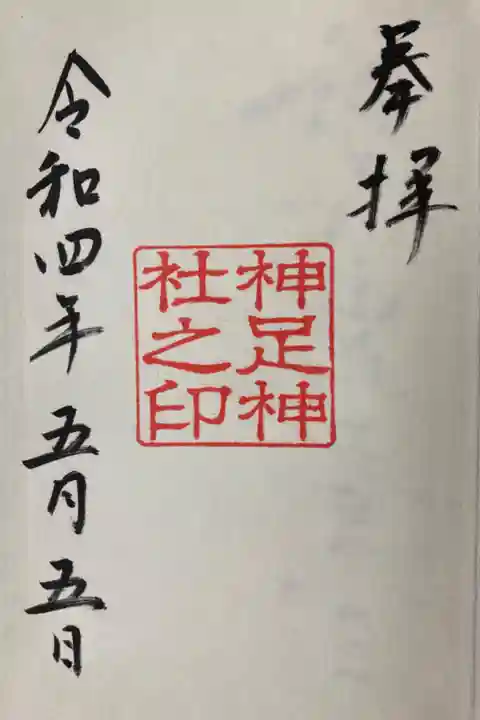 奉拝
神足神
社之印
令和四年五月五日